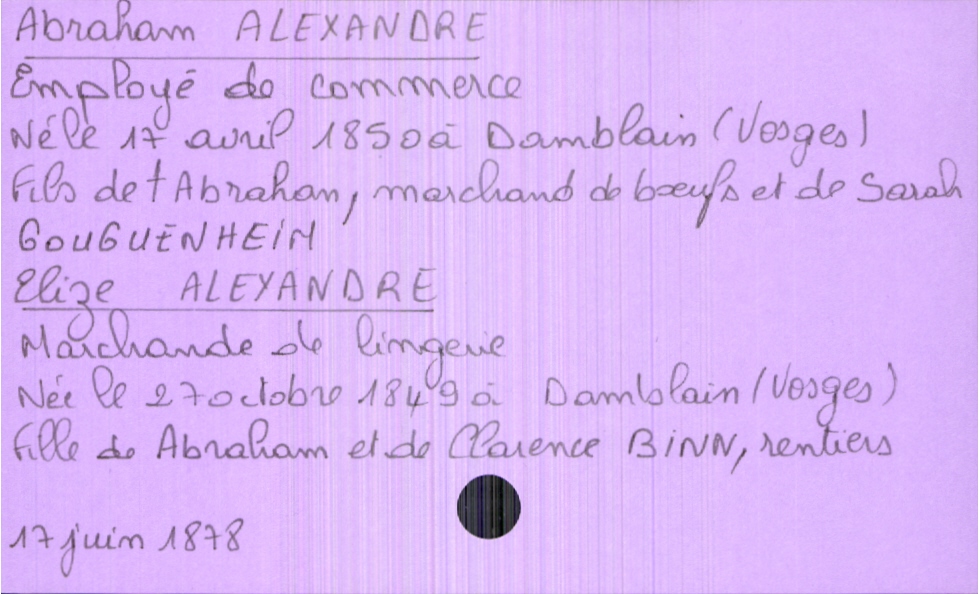 Abraham ALEXANDRE
Employé de commerce
Né le 17 avril 1850 à Damblain (Vosges)
Fils de † Abrahan, marchand de bœufs et de Sarah
GOUGUENHEIM
Elize ALEXANDRE
Marchande de lingerie
Née le 27 octobre 1849 à Damblain (Vosges)
Fille de Abraham et de Clarence BINN, rentiers
17 juin 1878